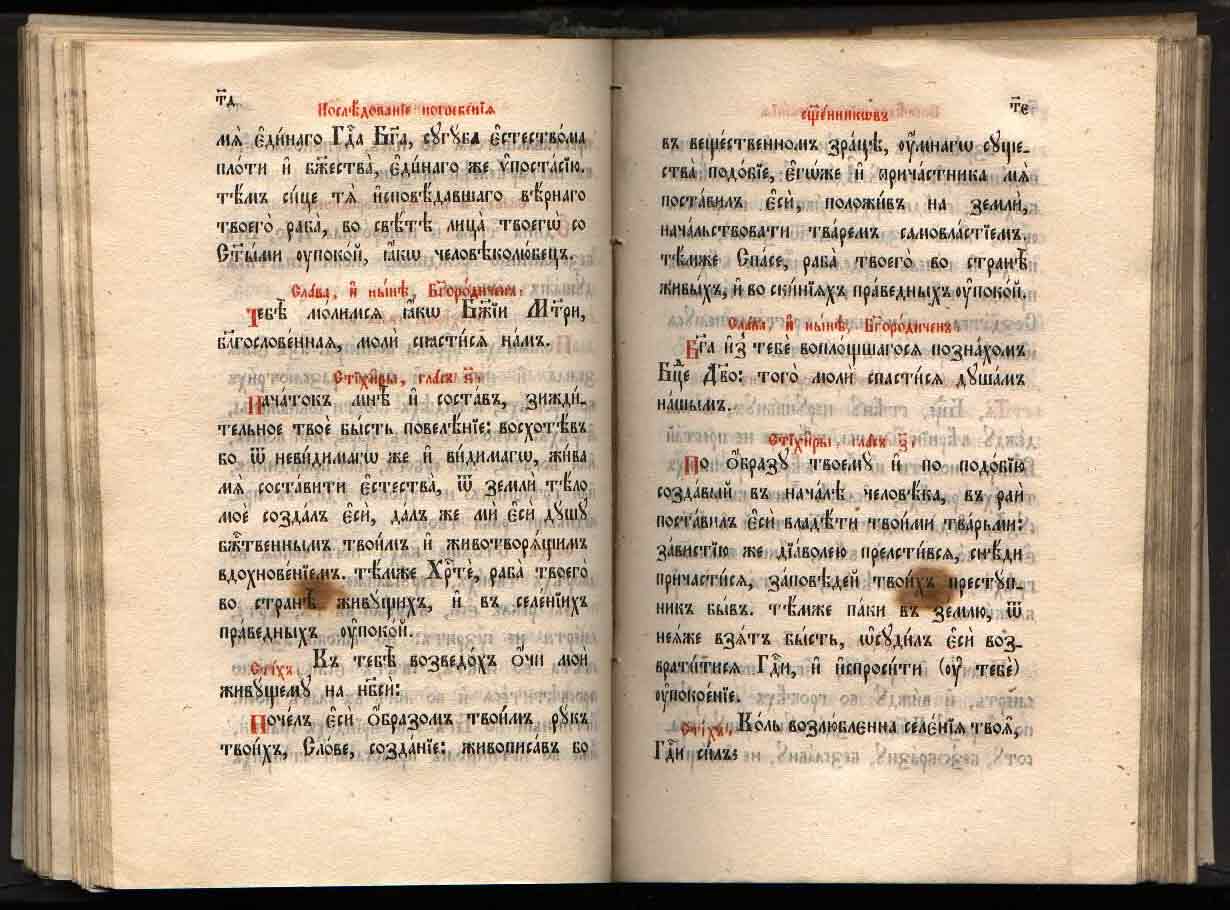 т҃д
Послѣ́дованїе погребе́нїѧ
мѧ̀ є҆ди́наго Гдⷭ҇а Бг҃а, сꙋгꙋ́ба є҆стество́ма
пло́ти и҆ бж҃ества̀, є҆ди́наго же ѵ҆поста́сїю.
тѣ́мъ си́це тѧ̀ и҆сповѣ́давшаго вѣ́рнаго
твоего̀ раба̀, во свѣ́тѣ лица̀ твоегѡ̀ со
Ст҃ы́ми ᲂу҆поко́й, ꙗ҆́кѡ человѣколю́бецъ.
Сла́ва, и҆ ны́нѣ, Бг҃оро́диченъ:
Тебѣ̀ мо́лимсѧ ꙗ҆́кѡ Бж҃їи Мт҃ри,
бл҃гослове́ннаѧ, молѝ спасти́сѧ на́мъ.
Стїхи̑ры, гла́съ и҃:
Нача́токъ мнѣ̀ и҆ соста́въ, зижди́-
тельное твоѐ бы́сть повелѣ́нїе: восхотѣ́въ
бо ѿ неви́димагѡ же и҆ ви́димагѡ, жи́ва
мѧ̀ соста́вити є҆стества̀, ѿ землѝ тѣ́ло
моѐ созда́лъ є҆сѝ, да́лъ же мѝ є҆сѝ дꙋ́шꙋ
бж҃твеннымъ твои́мъ и҆ животворѧ́щимъ
вдохнове́нїемъ. тѣ́мже Хрⷭ҇тѐ, раба̀ твоего̀
во странѣ̀ живꙋ́щихъ, и҆ въ селе́нїихъ
пра́ведныхъ ᲂу҆поко́й.
Сті́хъ, Къ тебѣ̀ возведо́хъ ѻ҆́чи моѝ
живꙋ́щемꙋ на нб҃сѝ:
Поче́лъ є҆сѝ ѻ҆́бразомъ твои́мъ рꙋ́къ
твои́хъ, Сло́ве, созда́нїе: живописа́въ бо
т҃є
сщ҃е́нникѡвъ
въ веще́ственномъ зра́цѣ, ᲂу҆́мнагѡ сꙋще-
ства̀ подо́бїе, є҆гѡ́же и҆ прича́стника мѧ̀
поста́вилъ є҆сѝ, положи́въ на землѝ,
нача́льствовати тва́ремъ самовла́стїемъ.
тѣ́мже Спа́се, раба̀ твоего̀ во странѣ̀
живы́хъ, и҆ во ски́нїѧхъ пра́ведныхъ ᲂу҆поко́й.
Сла́ва, и҆ ны́нѣ, Бг҃оро́диченъ
Бг҃а и҆з̾ тебѐ вопло́щшагосѧ позна́хомъ
Бц҃е Дв҃о: того̀ молѝ спасти́сѧ дꙋша́мъ
на́шымъ.
Стїхи̑ры гла́съ з҃:
По ѻ҆́бразꙋ твоемꙋ̀ и҆ по подо́бїю
созда́вый въ нача́лѣ человѣ́ка, въ раѝ
поста́вилъ є҆сѝ владѣ́ти твои́ми тва́рьми:
за́вистїю же дїа́волею прелсти́всѧ, снѣ́ди
причасти́сѧ, за́повѣдей твои́хъ престꙋ́п-
никъ бы́въ. тѣ́мже па́ки въ зе́млю, ѿ
неѧ́же взѧ́тъ бы́сть, ѡ҆сꙋди́лъ є҆сѝ воз-
врати́тисѧ Гдⷭ҇и, и҆ и҆спроси́ти (ᲂу҆ тебѐ)
ᲂу҆покое́нїе.
Сті́хъ, Ко́ль возлю́бленна селе́нїѧ твоѧ̑,
Гдⷭ҇и си́лъ;